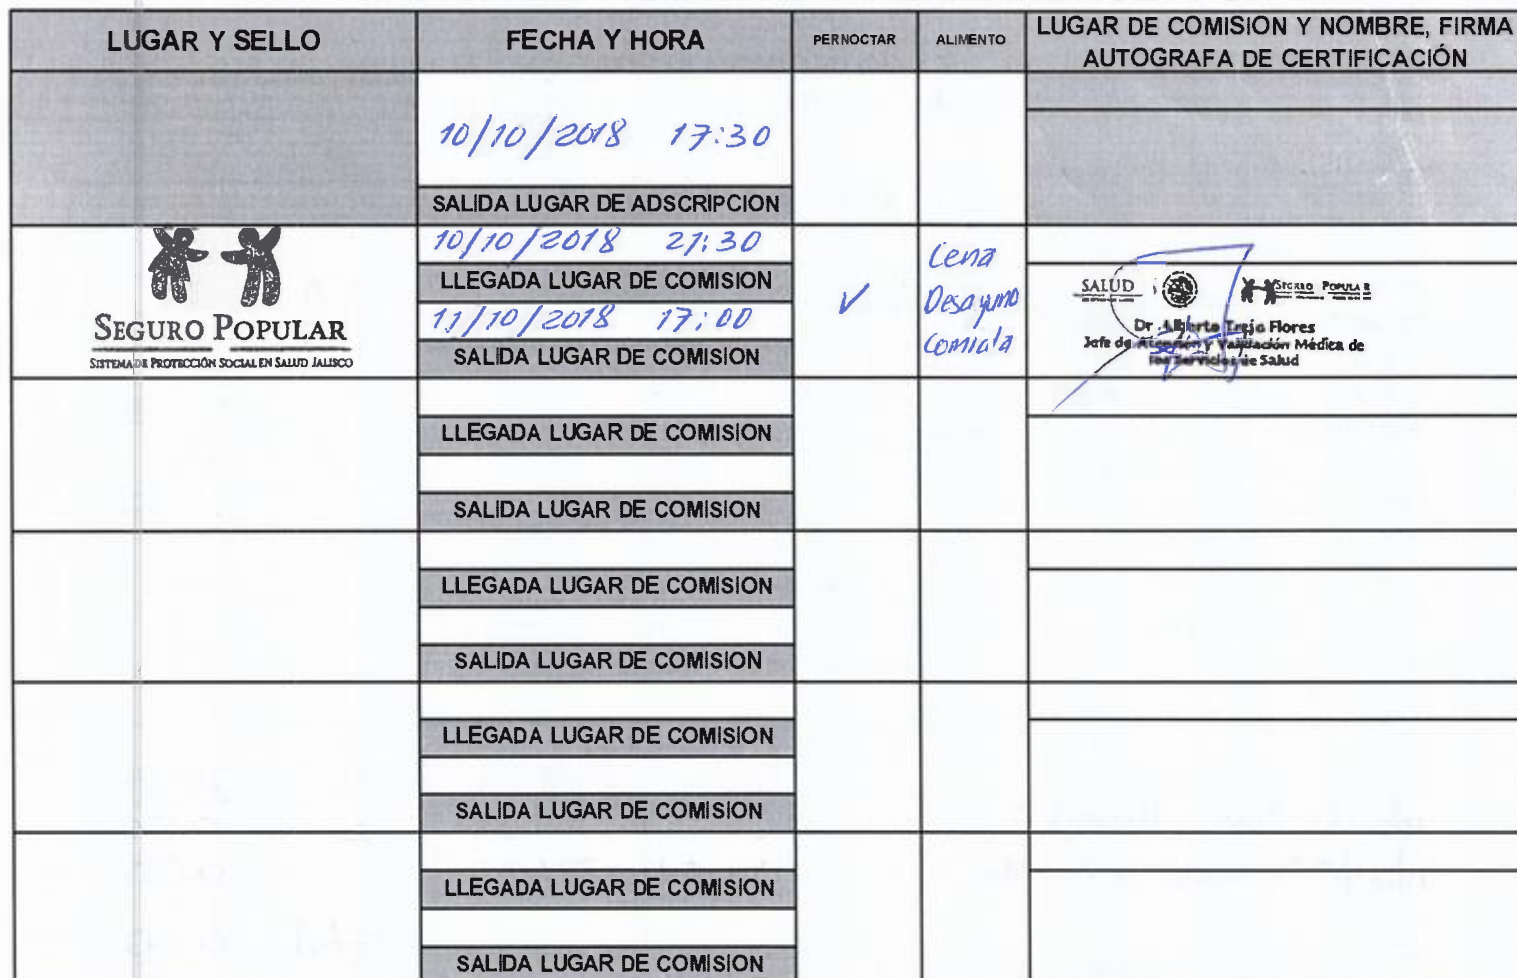 LUGAR Y SELLO
FECHA Y HORA
PERNOCTAR
ALIMENTO
LUGAR DE COMISION Y NOMBRE, FIRMA
AUTOGRAFA DE CERTIFICACIÓN
10/10/2018 17:30
SALIDA LUGAR DE ADSCRIPCION
SEGURO POPULAR
SISTEMA DE PROTECCIÓN SOCIAL EN SALUD JALISCO
10/10/2018 21:30
LLEGADA LUGAR DE COMISION
11/10/2018 17:00
SALIDA LUGAR DE COMISION
✓
Cena
Desayuno
Comida
SALUD
SEGURO POPULAR
Dr. Alberto Trejo Flores
Jefe de Atención y Validación Médica de
los Servicios de Salud
LLEGADA LUGAR DE COMISION
SALIDA LUGAR DE COMISION
LLEGADA LUGAR DE COMISION
SALIDA LUGAR DE COMISION
LLEGADA LUGAR DE COMISION
SALIDA LUGAR DE COMISION
LLEGADA LUGAR DE COMISION
SALIDA LUGAR DE COMISION